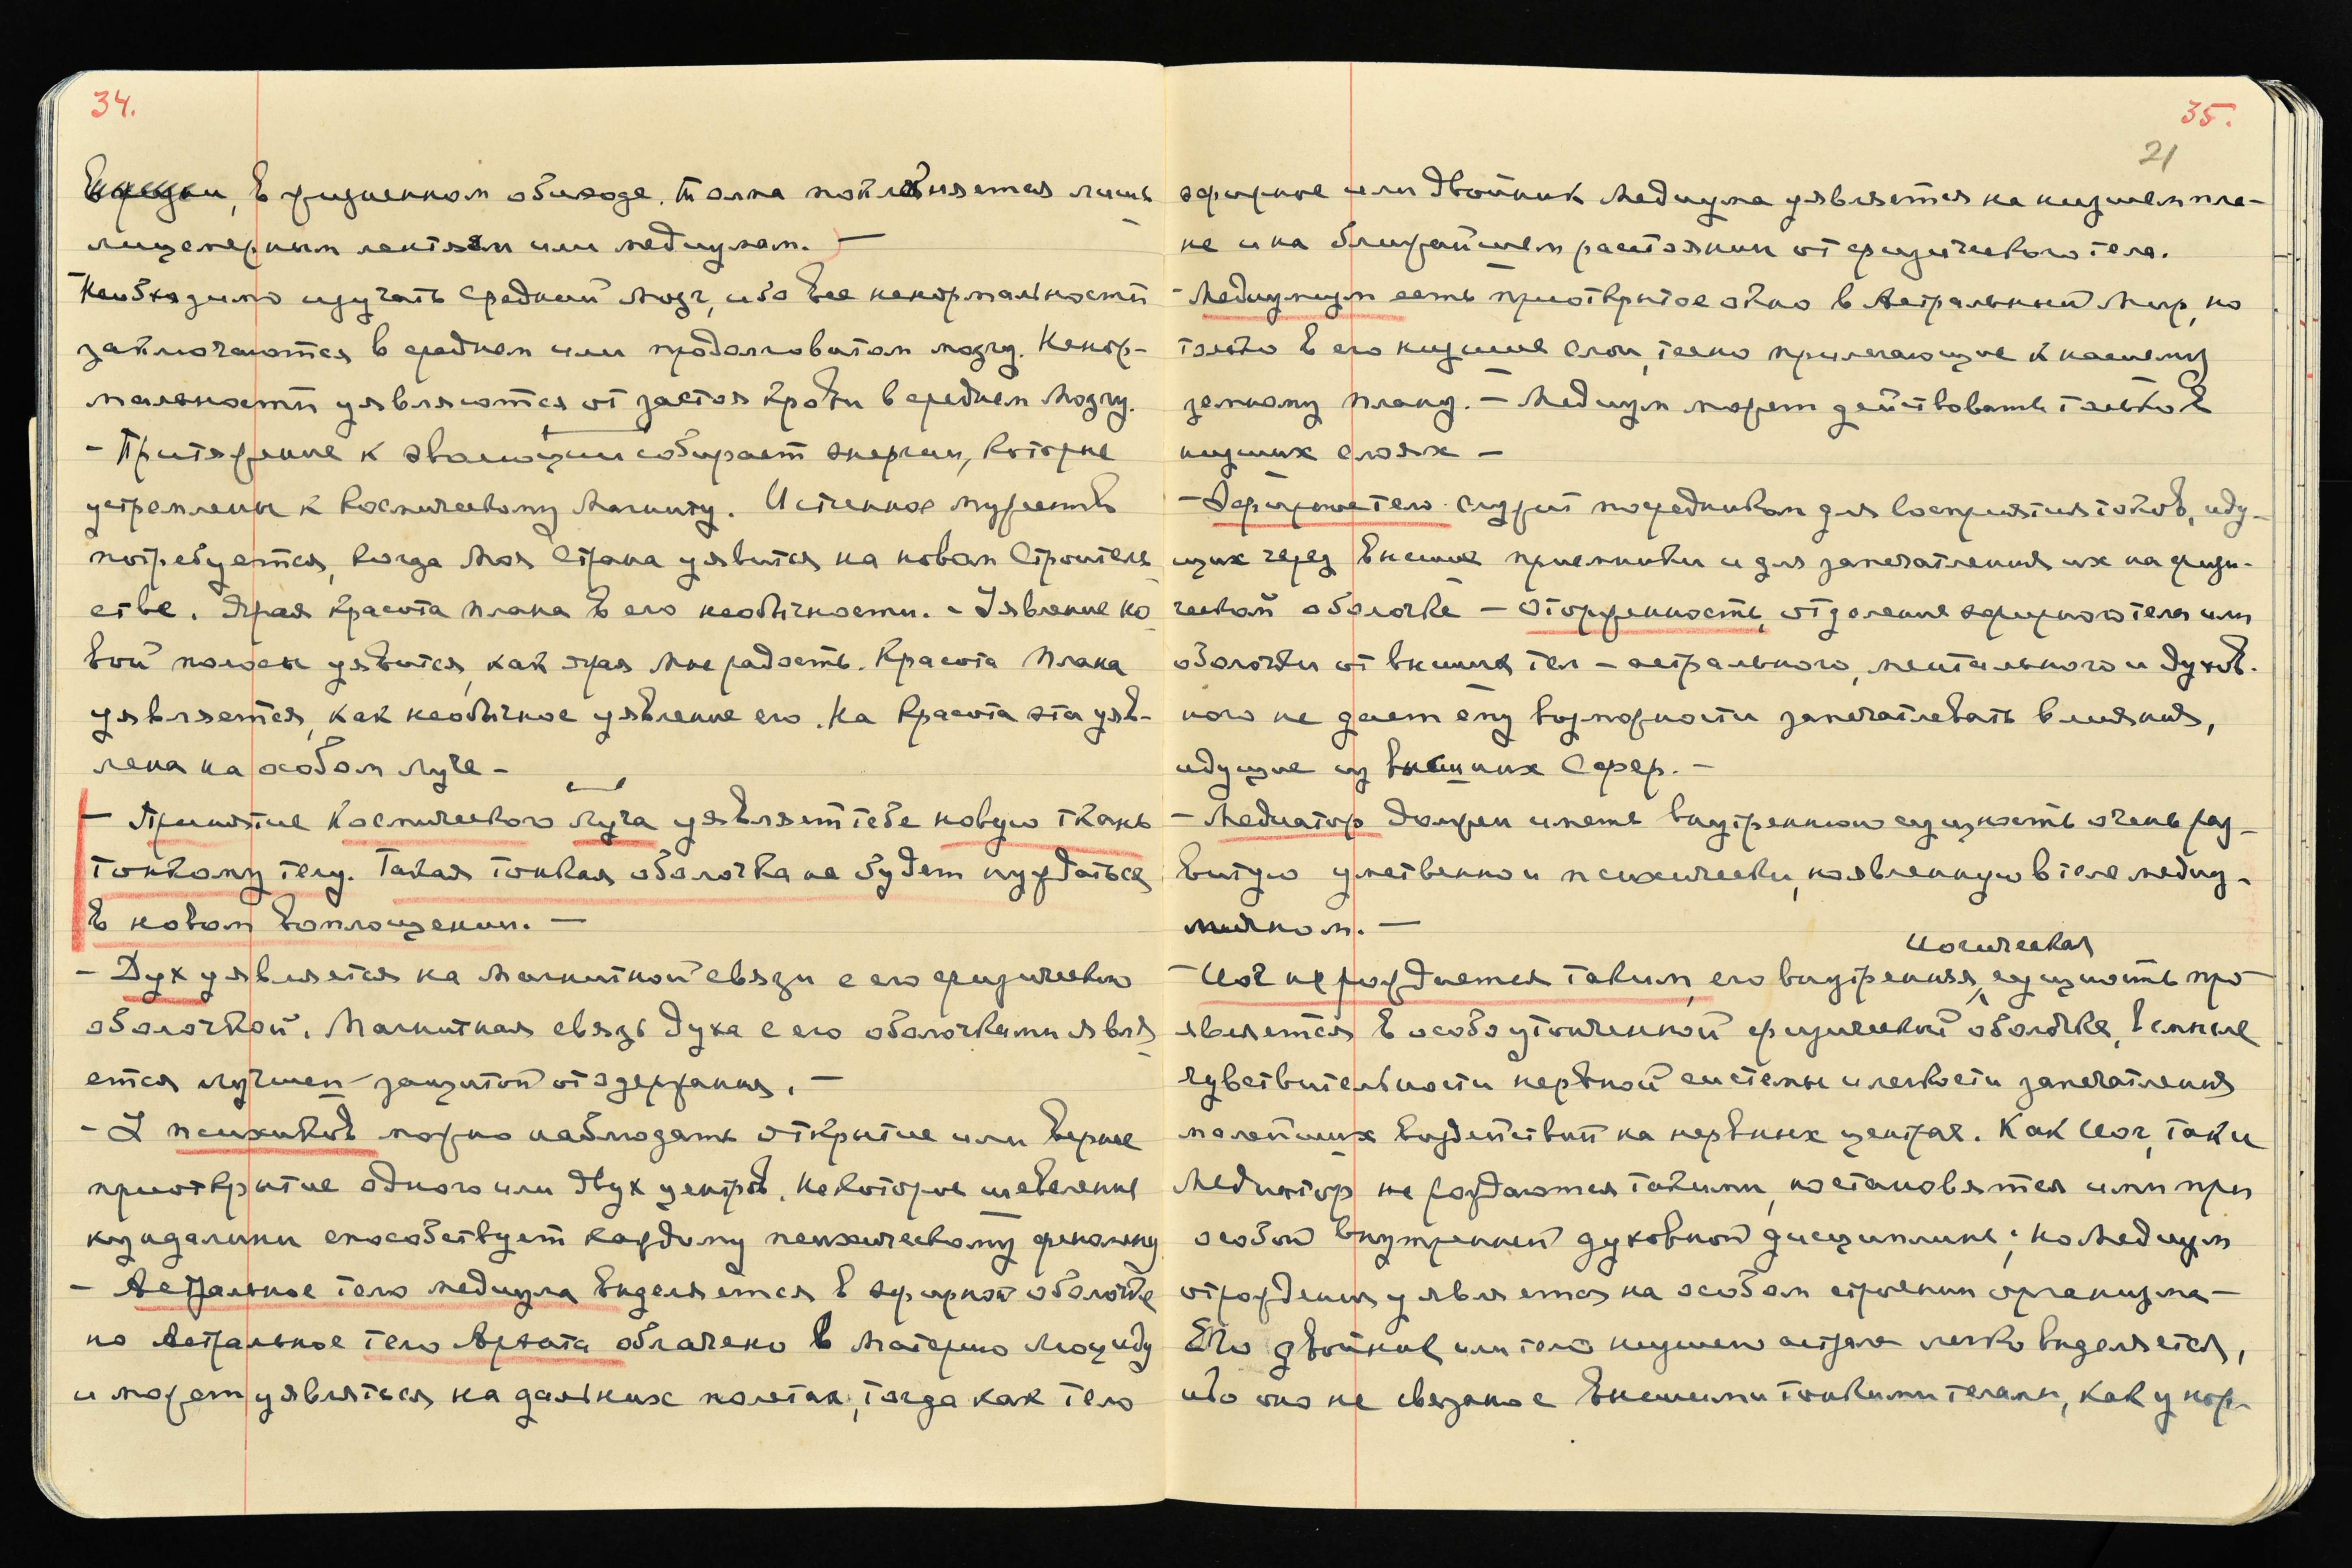 34.
в жизненном обиходе. Толпа поклоняется лишь
лицемерным или медиумам. —
Необходимо изучать средний мозг, ибо все ненормальности
заключаются в среднем или продолговатом мозгу. Ненор-
мальности уявляются от застоя крови в среднем мозгу.
- Притяжение к эволюции собирает энергии, которые
устремлены к Космическому Магниту. Истинное мужество
потребуется, когда Моя Страна уявится на новом Строитель-
стве. Ярая красота плана в его необычности. - Уявление но-
вой полосы уявится, как ярая Мне радость. Красота Плана
уявляется, как необычное уявление его. На красота эта уяв-
лена на особом луче -
- Принятие Космического Луча уявляет тебе новую ткань
тонкому телу. Такая тонкая оболочка не будет нуждаться
в новом воплощении. —
- Дух уявляется на магнитной связи с его физическою
оболочкой. Магнитная связь духа с его оболочками явля-
ется лучшей защитой от одержания. —
- У психиков можно наблюдать открытие или вернее
приоткрытие одного или двух центров. Некоторое шевеление
кундалини способствует каждому психическому феномену
- Астральное тело медиума выделяется в эфирной оболочке
но Астральное тело Архата облачено в Материю Люциду
и может уявляться на дальних полетах, тогда как тело
35.
21
эфирное или двойник медиума уявляется на низшем пла-
не и на ближайшем расстоянии от физического тела.
- Медиумизм есть приоткрытое окно в Астральный Мир, но
только в его низшие слои, тесно прилегающие к нашему
земному плану. - Медиум может действовать только в
низших слоях -
- Эфирное тело служит посредником для восприятия токов, иду-
щих через внешние приемники и для запечатления их на физи-
ческой оболочке - Отторженность, отделение эфирного тела или
оболочки от высших тел - астрального, ментального и духов-
ного не дает ему возможности запечатлевать влияния,
идущие из высших Сфер. -
- Медиатор должен иметь внутреннюю сущность очень раз-
витую умственно и психически, но явленную в теле медиу-
мичном. -
йогическая
- Йог не рождается таким, его внутренняя сущность про-
является в особо утонченной физической оболочке, в смысле
чувствительности нервной системы и легкости запечатления
малейших воздействий на нервных центрах. Как Йог, так и
Медиатор не рождаются такими, но становятся ими при
особой внутренней духовной дисциплине; но Медиум
от рождения уявляется на особом строении организма -
Его двойник или тело низшего астрала легко выделяется,
ибо оно не связано с высшими тонкими телами, как у нор-